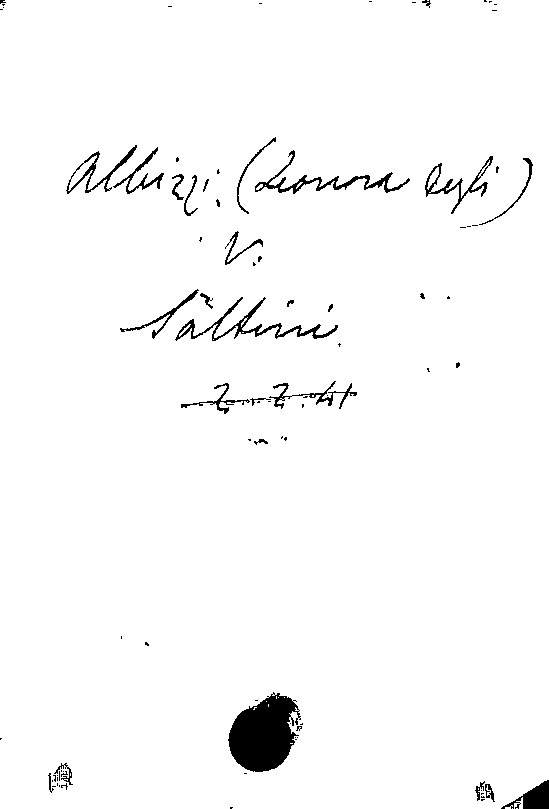 Albizzi (Leonora degli)
V.
Saltini
Z Z.41